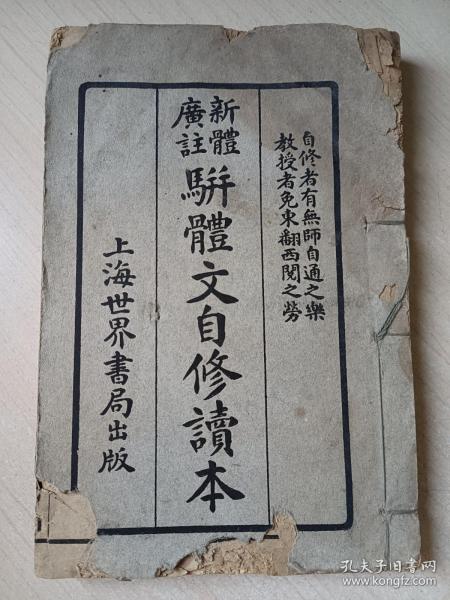 自修者有無師自通之樂
教授者免東翻西閱之勞
新體
廣註
駢體文自修讀本
上海世界書局出版
孔夫子旧书网
www.kongfz.com